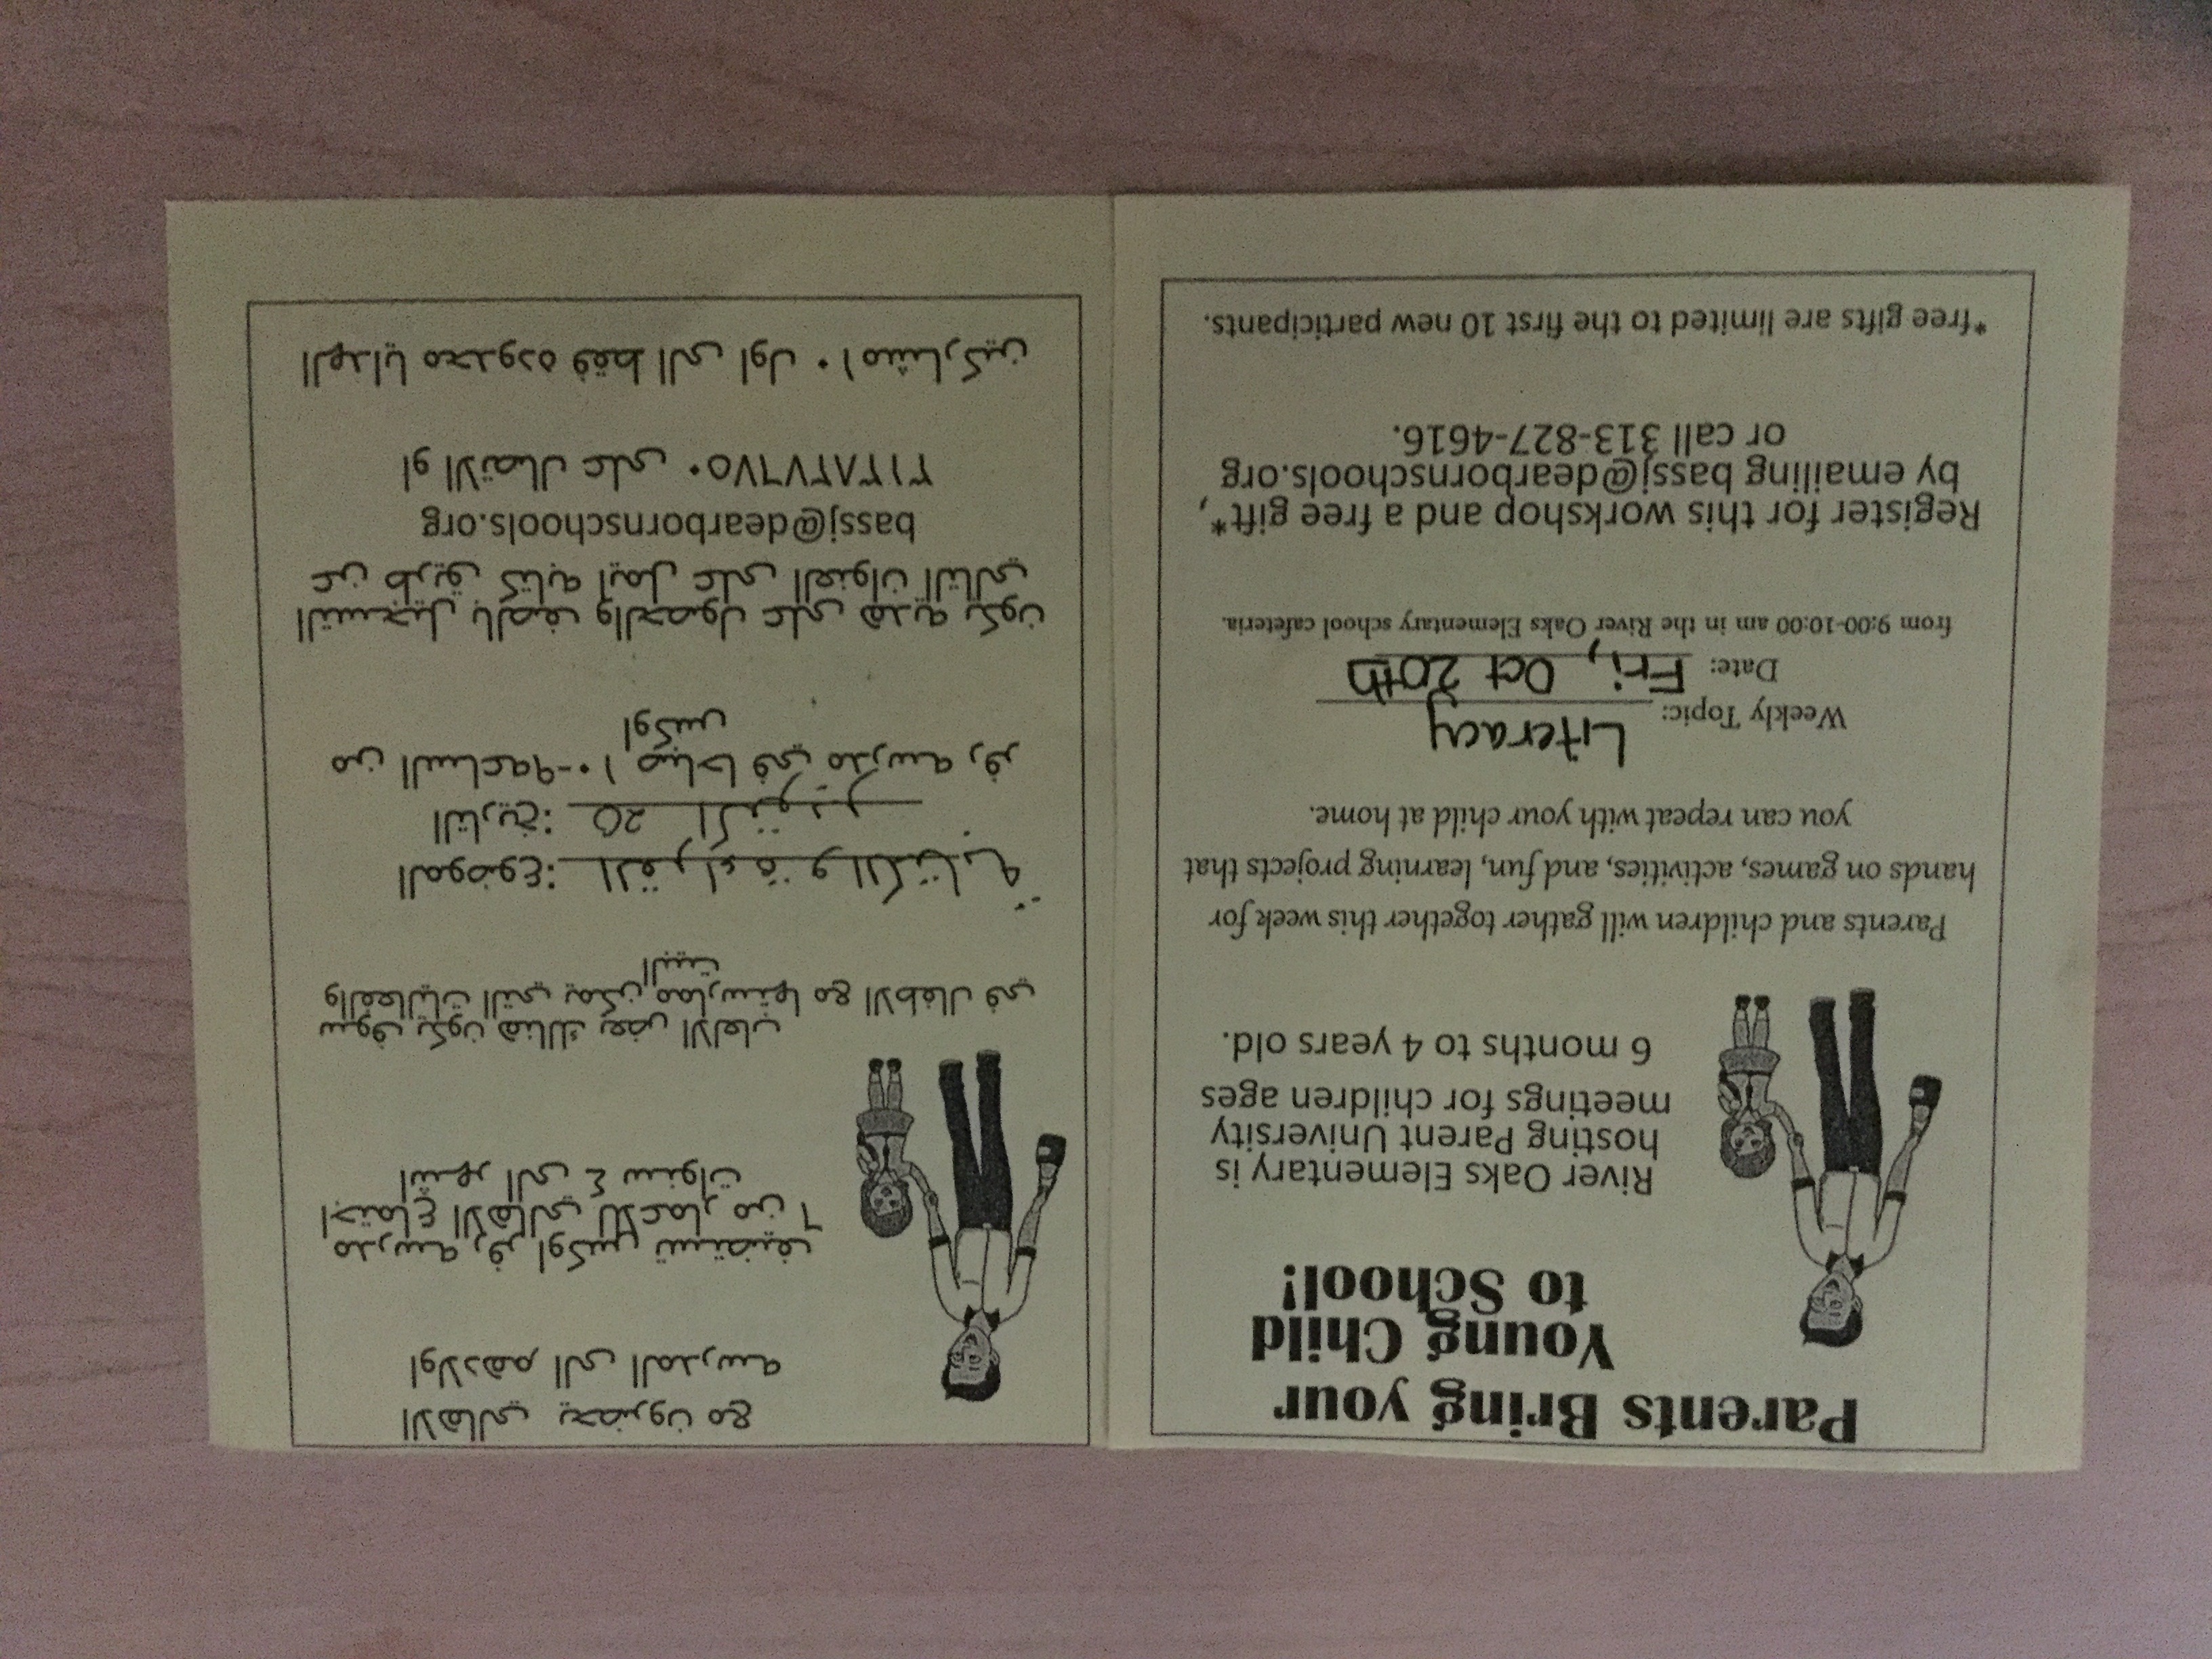 Parents Bring your
Young Child
to School!
River Oaks Elementary is
hosting Parent University
meetings for children ages
6 months to 4 years old.
Parents and children will gather together this week for
hands on games, activities, and fun, learning projects that
you can repeat with your child at home.
Weekly Topic: Literacy
Date: Fri, Oct 20th
from 9:00-10:00 am in the River Oaks Elementary school cafeteria.
Register for this workshop and a free gift*,
by emailing bassj@dearbornschools.org
or call 313-827-4616.
*free gifts are limited to the first 10 new participants.
الاهالي يحضرون مع
اولادهم الى المدرسه
مدرسه رفر اوكس تستضيف
اجتماع الاهالي للاعمار من ٦
اشهر الى ٤ سنوات
سوف يكون هنالك بعض الالعاب
والفعاليات التي يمكن ممارستها مع الاطفال في
البيت
الموضوع: القراءة والكتابة
التاريخ: 20 اكتوبر
من الساعه ٩-١٠ صباحا في مدرسه رفر
اوكس
التسجيل بالصف والحصول على هديه يكون
عن طريق كتابه ايمل على العنوان التالي
bassj@dearbornschools.org
او الاتصال على ٣١٣٨٢٧٦٧٥٠
الهدايا محدوده فقط الى اول ١٠ مشاركين